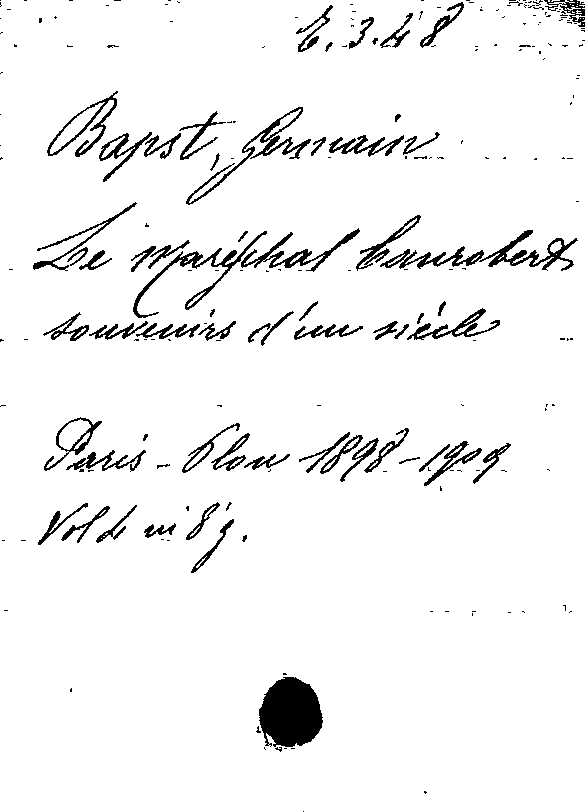 E. 3. 48
Bapst, Germain
Le Maréchal Canrobert
souvenirs d'un siècle
Paris - Plon 1898-1909
Vol 4 in 8°g.